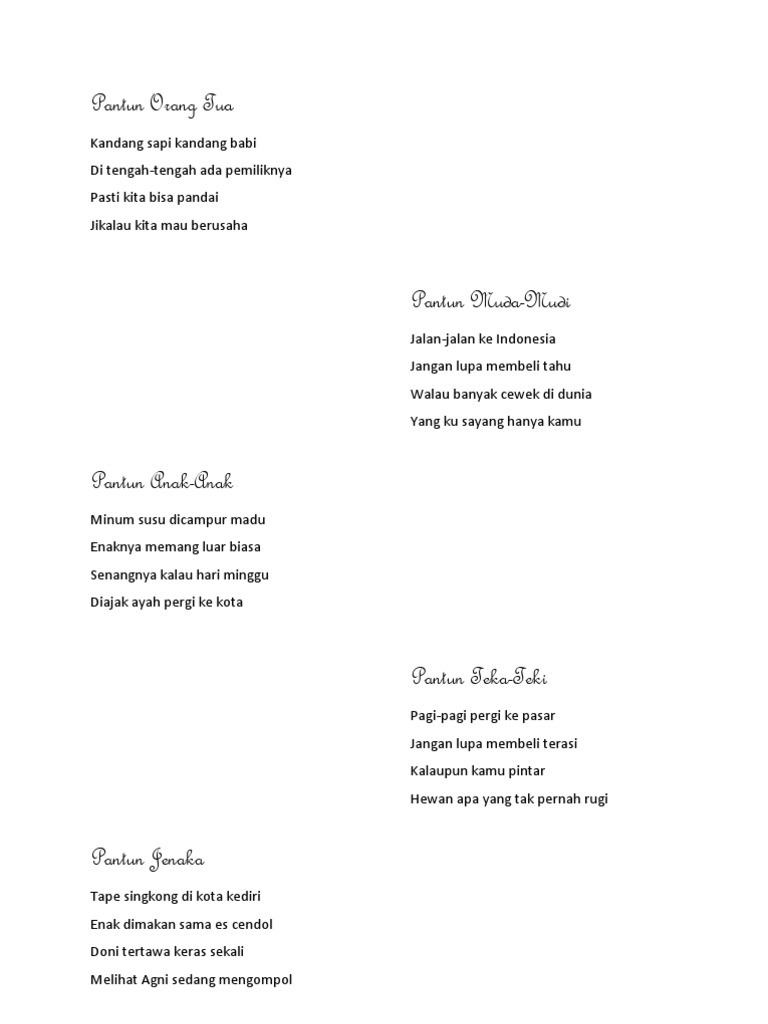 Pantun Orang Tua
Kandang sapi kandang babi
Di tengah-tengah ada pemiliknya
Pasti kita bisa pandai
Jikalau kita mau berusaha
Pantun Muda-Mudi
Jalan-jalan ke Indonesia
Jangan lupa membeli tahu
Walau banyak cewek di dunia
Yang ku sayang hanya kamu
Pantun Anak-Anak
Minum susu dicampur madu
Enaknya memang luar biasa
Senangnya kalau hari minggu
Diajak ayah pergi ke kota
Pantun Teka-Teki
Pagi-pagi pergi ke pasar
Jangan lupa membeli terasi
Kalaupun kamu pintar
Hewan apa yang tak pernah rugi
Pantun Jenaka
Tape singkong di kota kediri
Enak dimakan sama es cendol
Doni tertawa keras sekali
Melihat Agni sedang mengompol